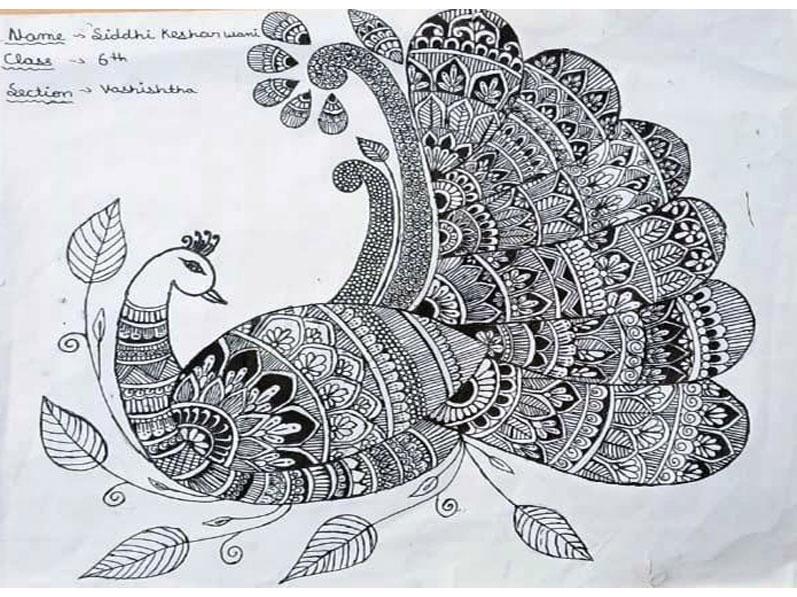 Name → Siddhi Kesharwani
Class → 6th
Section → Vashishtha